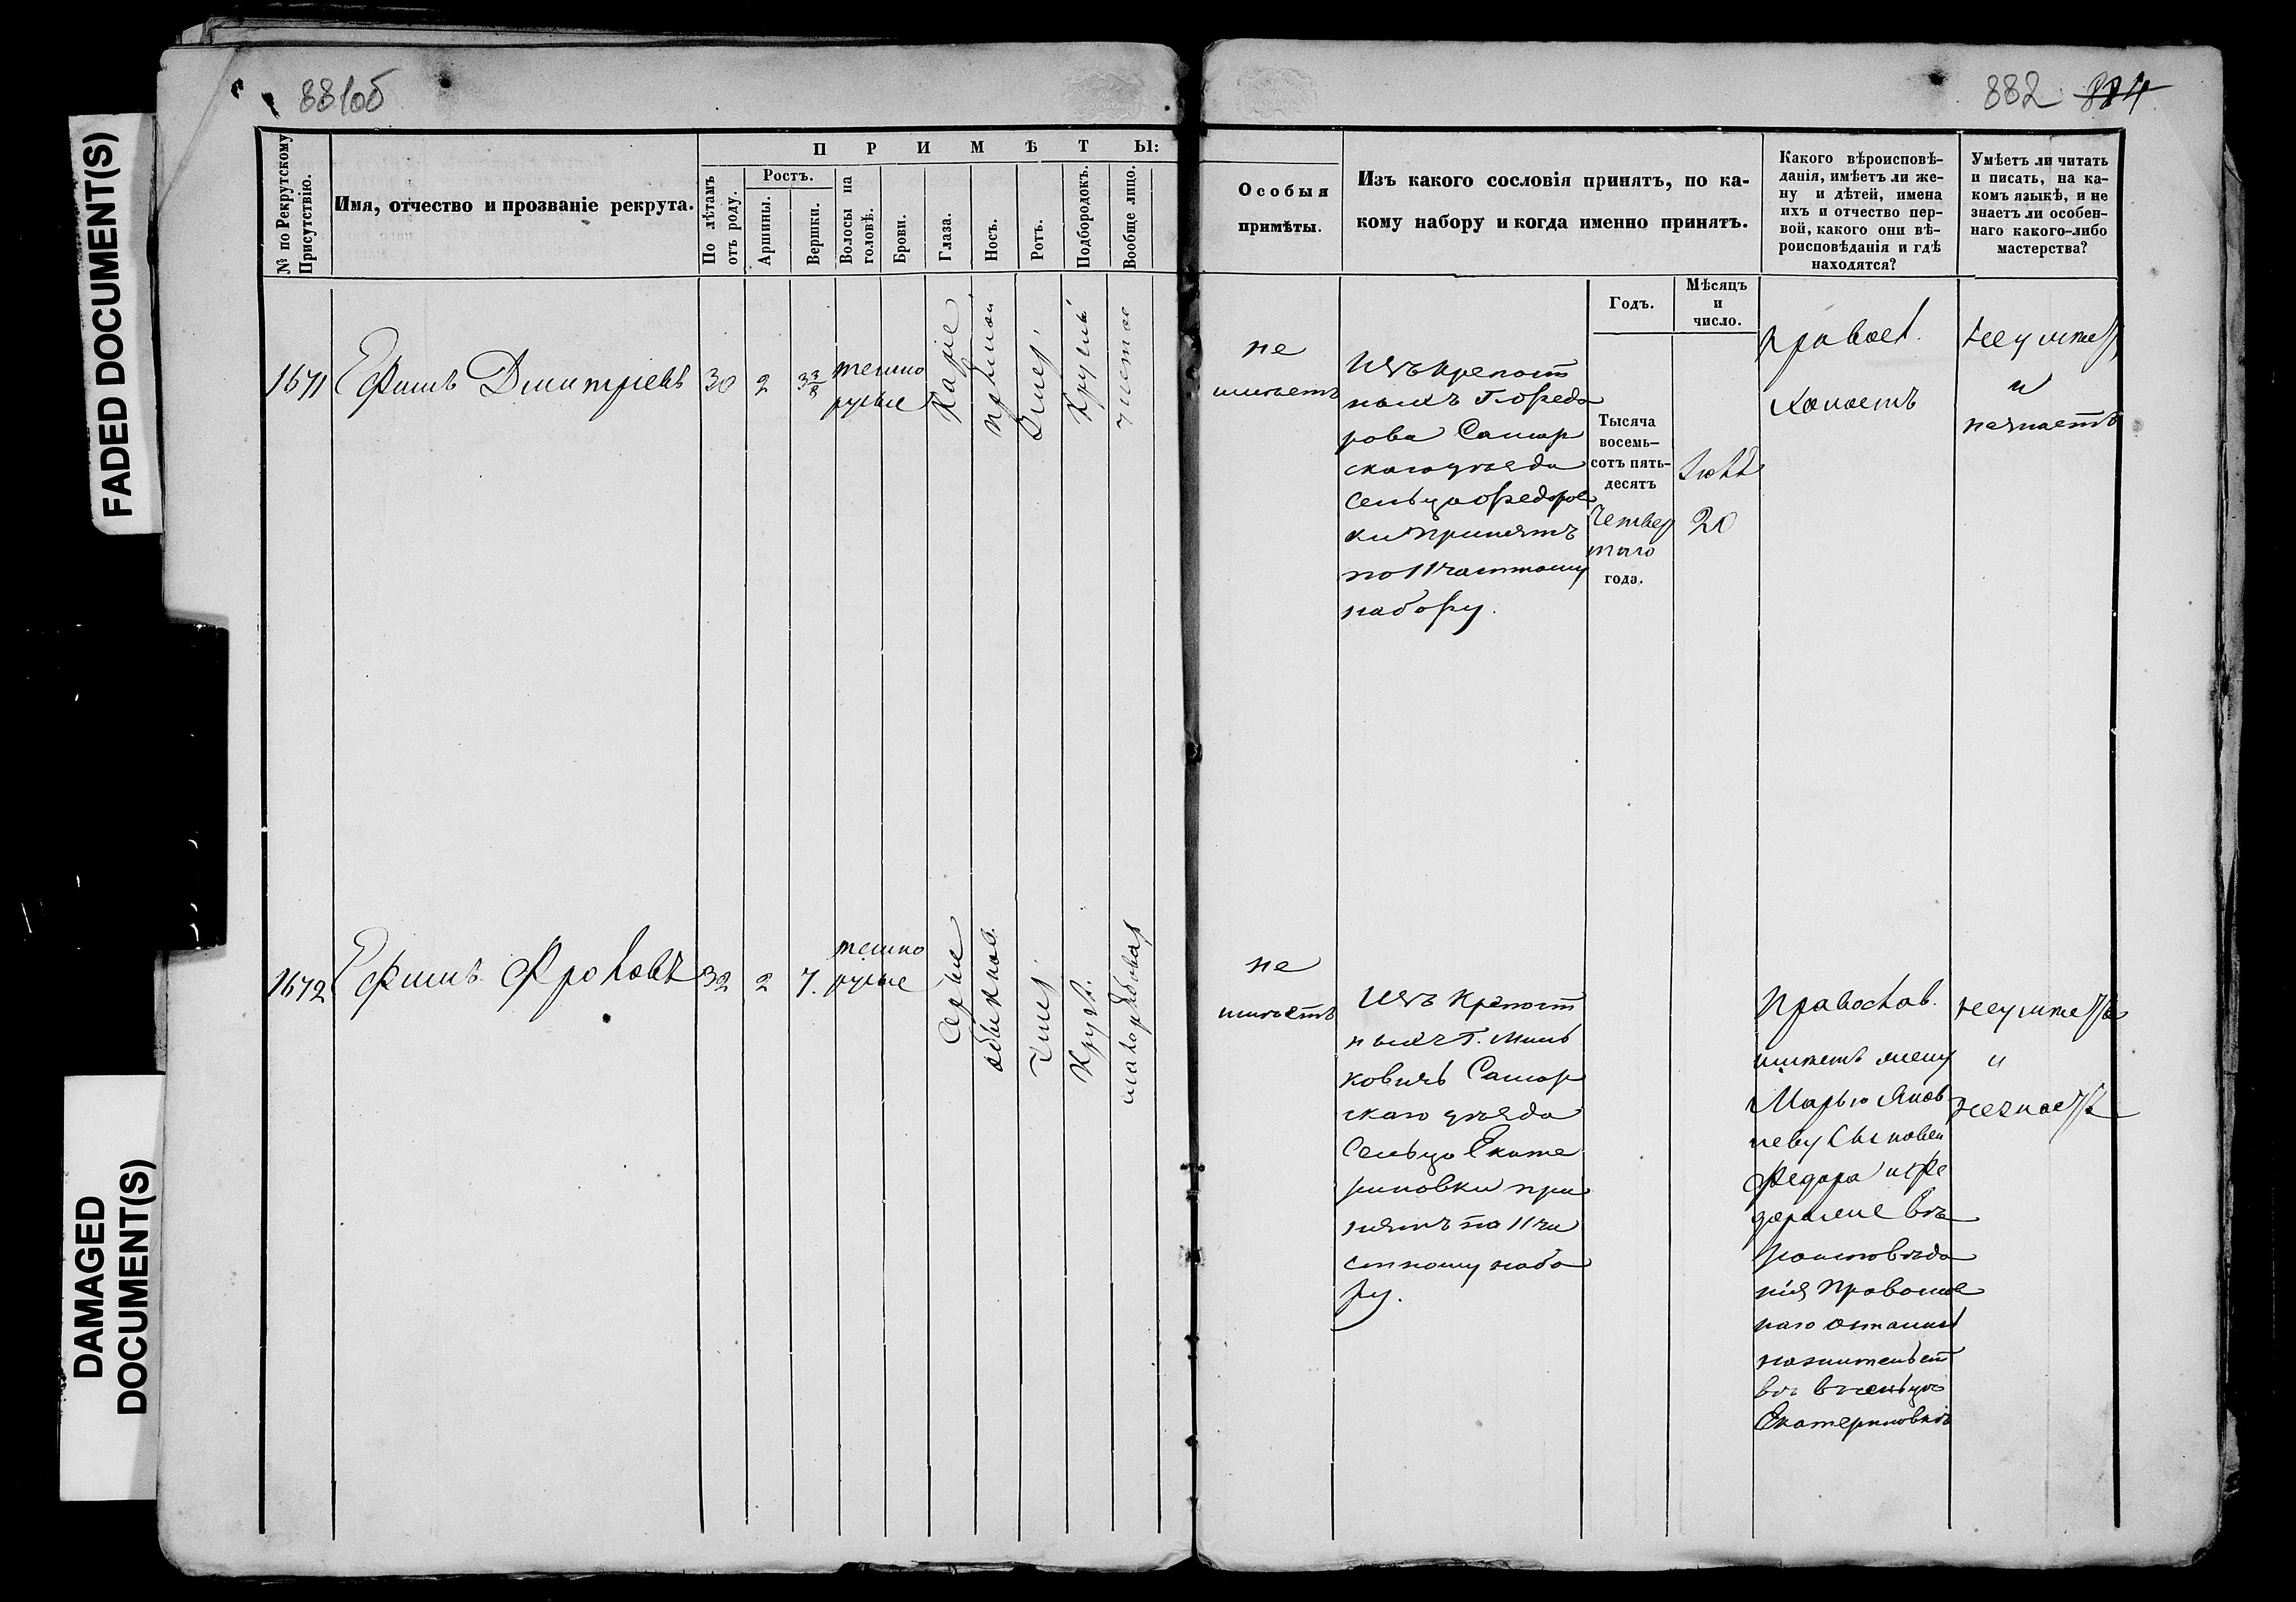 881об
882 874
FADED DOCUMENT(S)
DAMAGED
DOCUMENT(S)
№ по Рекрутскому
Присутствію.
Имя, отчество и прозваніе рекрута.
ПРИМѢТЫ:
По лѣтамъ
отъ роду.
Ростъ.
Аршины.
Вершки.
Волосы на
головѣ.
Брови.
Глаза.
Носъ.
Ротъ.
Подбородокъ.
Вообще лицо.
Особыя
примѣты.
Изъ какого сословія принятъ, по ка-
кому набору и когда именно принятъ.
Годъ.
Мѣсяцъ
и
число.
Какого вѣроисповѣ-
данія, имѣетъ ли же-
ну и дѣтей, имена
ихъ и отчество пер-
вой, какого они вѣ-
роисповѣданія и гдѣ
находятся?
Умѣетъ ли читать
и писать, на ка-
комъ языкѣ, и не
знаетъ ли особен-
наго какого-либо
мастерства?
1671
Ефимъ Дмитріевъ
30
2
3 3/8
темно
русые
Каріе
прямой
Круглый
чистое
не
имѣетъ
Изъ крепост
ныхъ Г. Федо
рова Самар
скаго уѣзда
сельца Федоров
ки принятъ
по 11 частному
набору.
Тысяча
восемь-
сотъ пять-
десятъ
Четвер
таго
года.
20
правосл.
Холостъ
Неумѣетъ
и
незнаетъ
1672
Ефимъ Фроловъ
32
2
7.
темно
русые
Серые
обыкнов.
Кругл.
не
имѣетъ
Изъ Крепост
ныхъ Г.
Самар
скаго уѣзда
Сельца Екате
риновки при
нятъ по 11 ча
стному набо
ру.
Православ.
имѣетъ жену
Марью Яков
леву Сыновей
Федора и Фе
вѣ
роисповѣда
нія Православ
наго остались
на жительст
вѣ въ сельцѣ
Екатериновкѣ
Неумѣетъ
и
незнаетъ